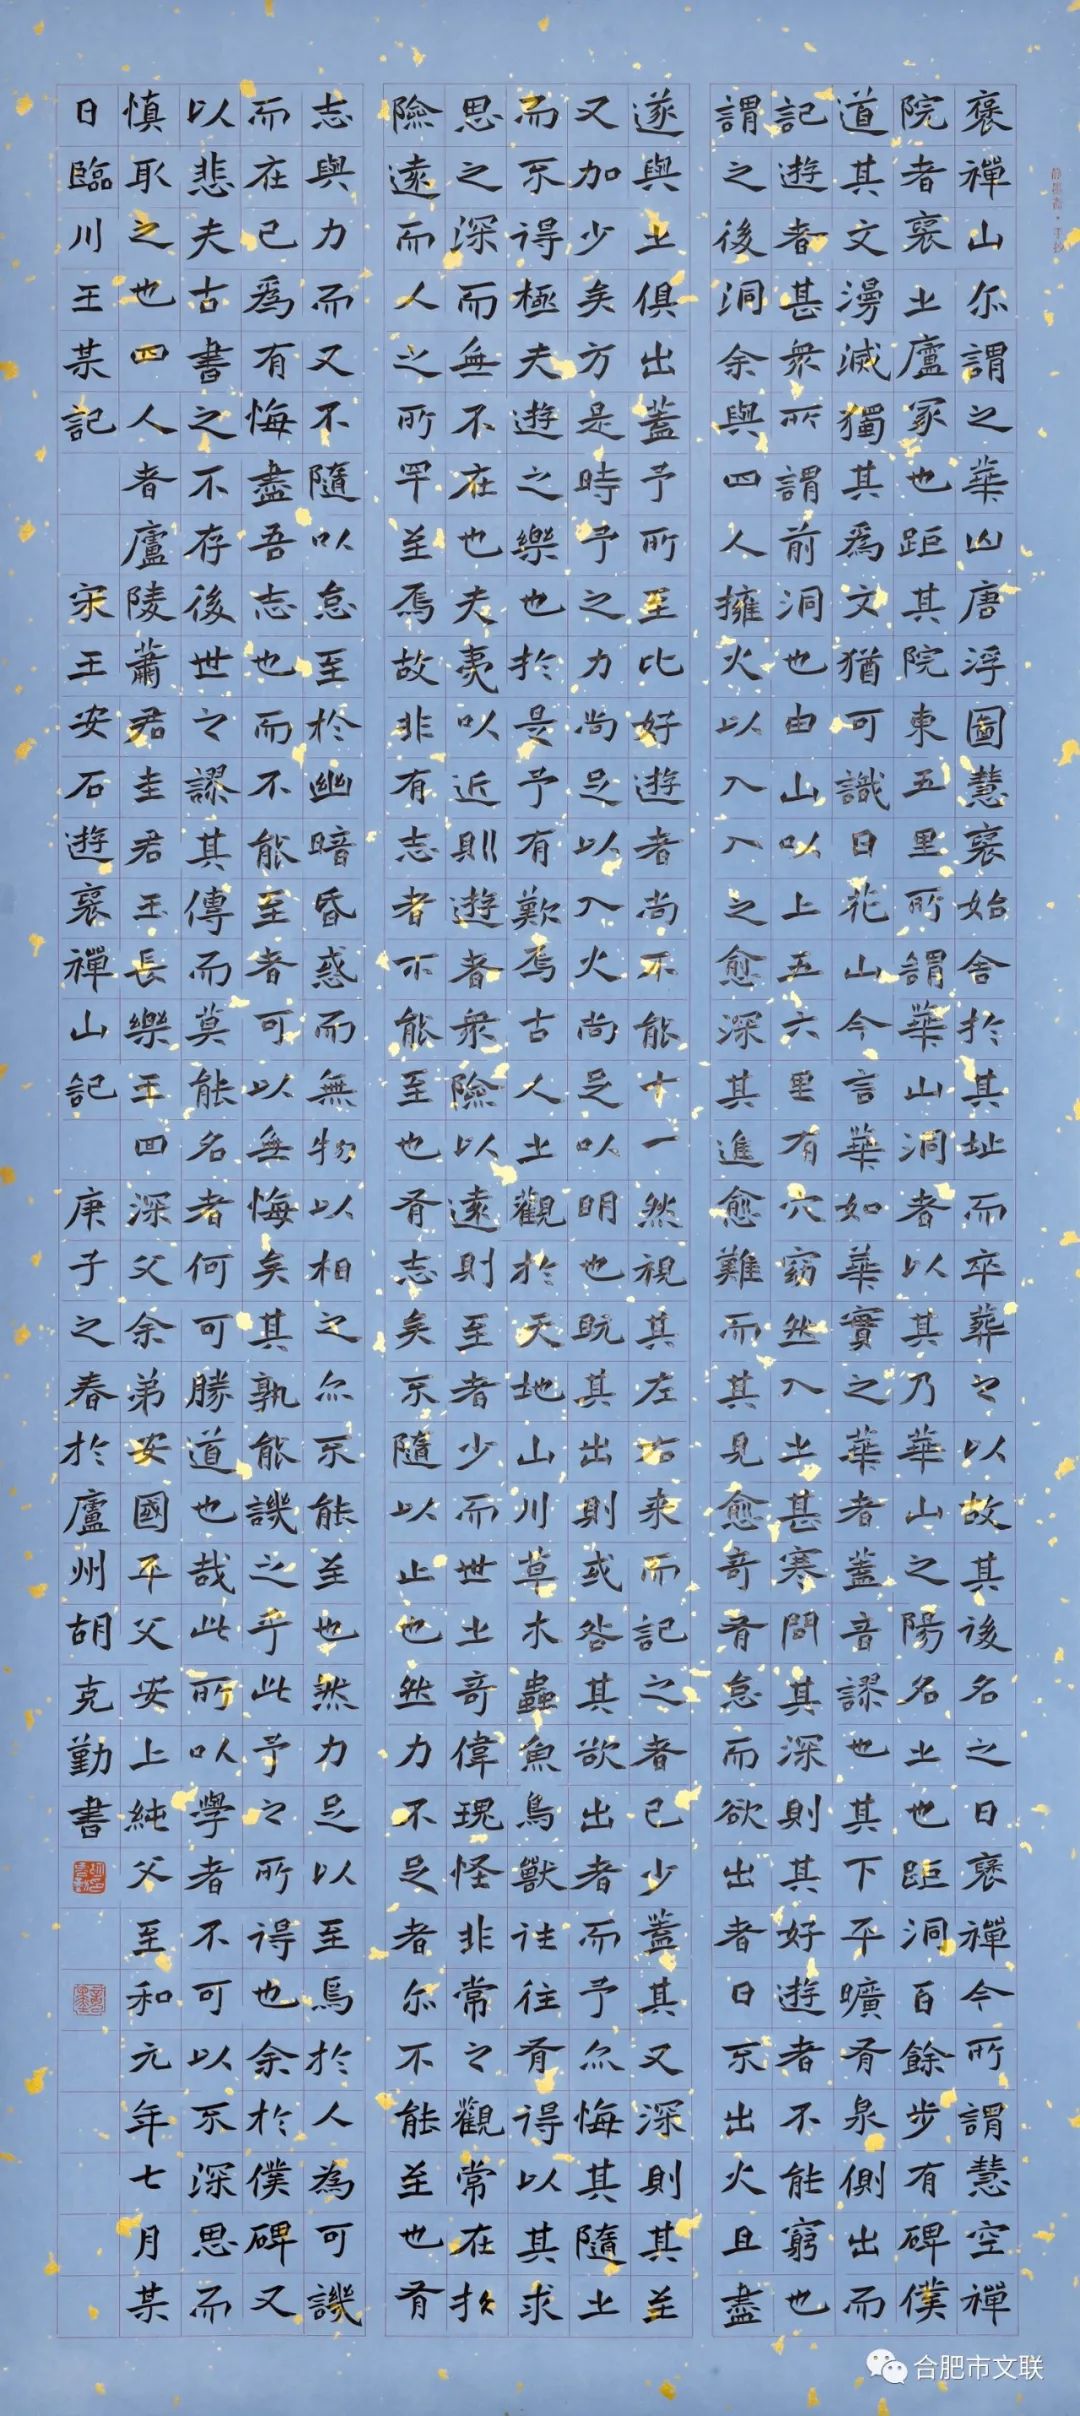 褒禪山亦謂之華山唐浮圖慧褒始舍於其址而卒葬之以故其後名之曰褒禪今所謂慧空禪
院者褒之廬冢也距其院東五里所謂華山洞者以其乃華山之陽名之也距洞百餘步有碑僕
道其文漫滅獨其爲文猶可識曰花山今言華如華實之華者蓋音謬也其下平曠有泉側出而
記遊者甚衆所謂前洞也由山以上五六里有穴窈然入之甚寒問其深則其好遊者不能窮也
謂之後洞余與四人擁火以入入之愈深其進愈難而其見愈奇有怠而欲出者曰不出火且盡
遂與之俱出蓋予所至比好遊者尚不能十一然視其左右来而記之者已少蓋其又深則其至
又加少矣方是時予之力尚足以入火尚足以明也既其出則或咎其欲出者而予亦悔其隨之
而不得極夫遊之樂也於是予有歎焉古人之觀於天地山川草木蟲魚鳥獸往往有得以其求
思之深而無不在也夫夷以近則遊者衆險以遠則至者少而世之奇偉瑰怪非常之觀常在於
險遠而人之所罕至焉故非有志者不能至也有志矣不隨以止也然力不足者亦不能至也有
志與力而又不隨以怠至於幽暗昏惑而無物以相之亦不能至也然力足以至焉於人為可譏
而在己爲有悔盡吾志也而不能至者可以無悔矣其孰能譏之乎此予之所得也余於僕碑又
以悲夫古書之不存後世之謬其傳而莫能名者何可勝道也哉此所以學者不可以不深思而
慎取之也四人者廬陵蕭君圭君玉長樂王回深父余弟安國平父安上純父至和元年七月某
日臨川王某記 宋王安石遊褒禪山記 庚子之春於廬州胡克勤書
合肥市文联